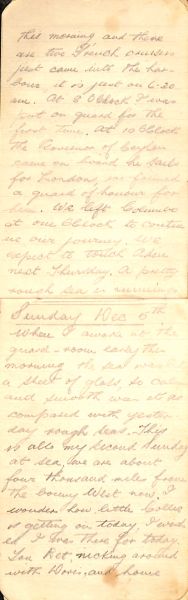 this morning and there
are two French cruisers
just come into the har-
bour, it is just on 6-30
am. At 8 OClock I was
put on guard for the
first time. At 10 OClock
the Governor of Ceylon
came on board he sails
for London, we formed
a guard of honour for
him. We left Colombo
at one OClock to contin
ue our journey. We
expect to touch Aden
next Thursday. A pretty
rough sea is running
Sunday Dec 6th
When I awoke at the
guard-room early this
morning the sea was like
a sheet of glass, so calm
and smooth was it as
compared with yester-
day rough seas. This
is also my second Sunday
at sea, we are about
four thousand miles from
the Country West now, I
wonder how little Collie
is getting on today. I wish
ed I was there for today.
You bet, nicking around
with Doris, and home